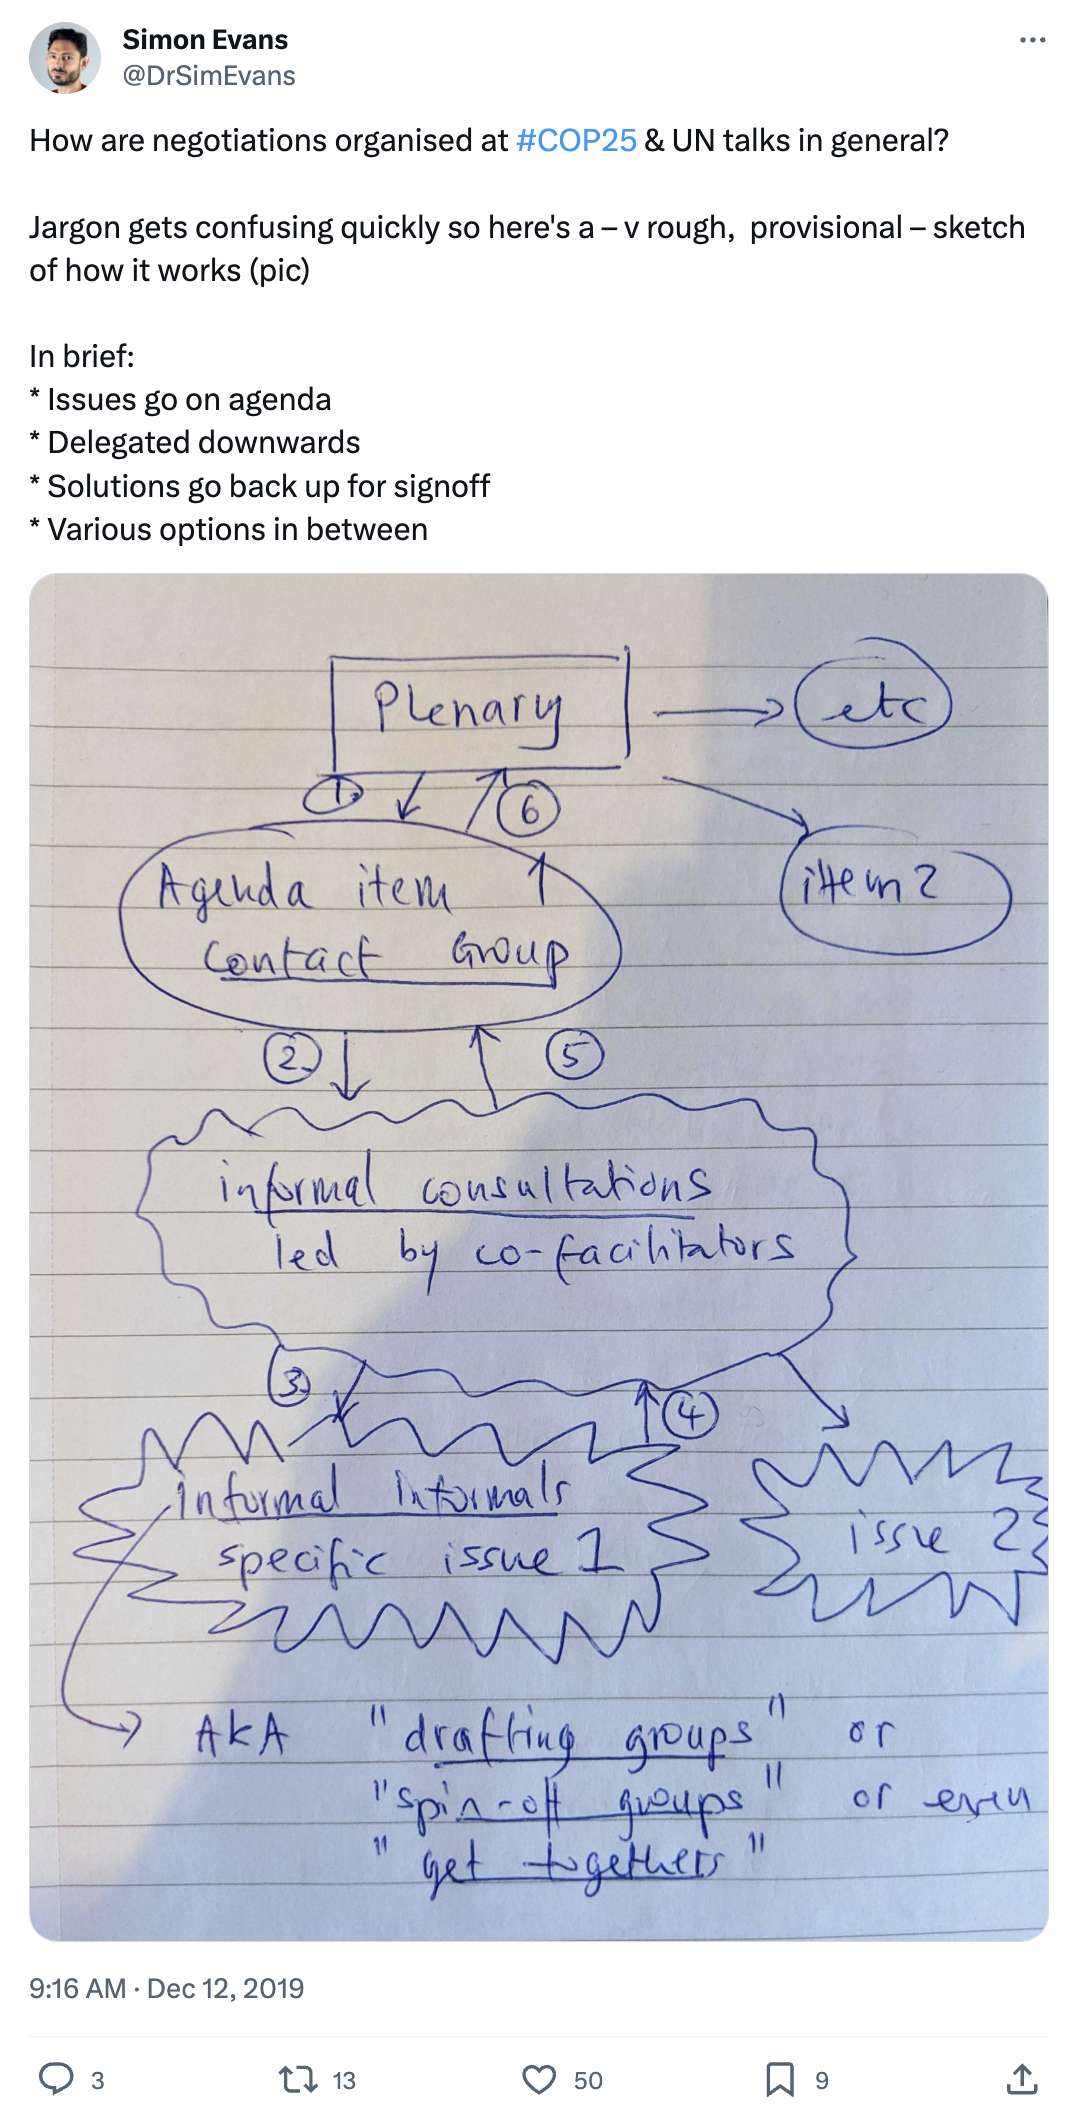 Simon Evans
@DrSimEvans
How are negotiations organised at #COP25 & UN talks in general?
Jargon gets confusing quickly so here's a – v rough,  provisional – sketch
of how it works (pic)
In brief:
* Issues go on agenda
* Delegated downwards
* Solutions go back up for signoff
* Various options in between
Plenary
etc
1
6
Agenda item
Contact Group
item 2
2
5
informal consultations
led by co-facilitators
3
4
informal informals
specific issue 1
issue 2
AKA "drafting groups" or
"spin-off groups" or even
"get togethers"
9:16 AM · Dec 12, 2019
3 13 50 9